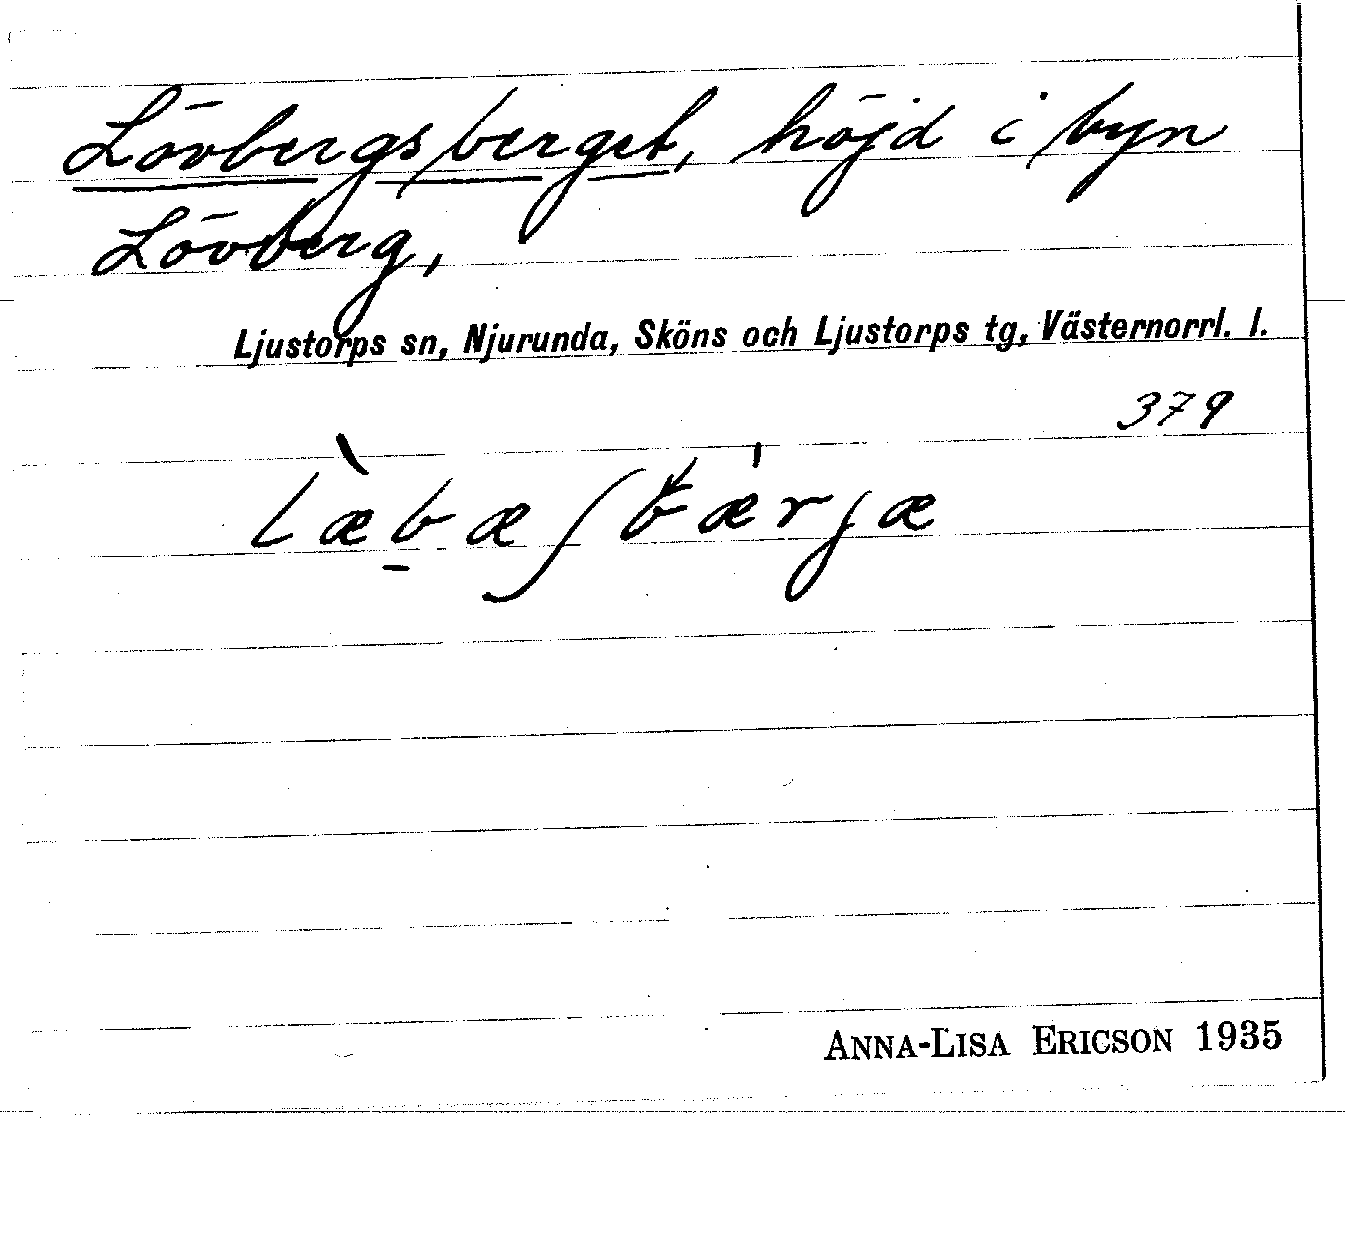 Lövbergsberget, höjd i byn
Lövberg,
Ljustorps sn, Njurunda, Sköns och Ljustorps tg, Västernorrl. l.
379
ANNA-LISA ERICSON 1935